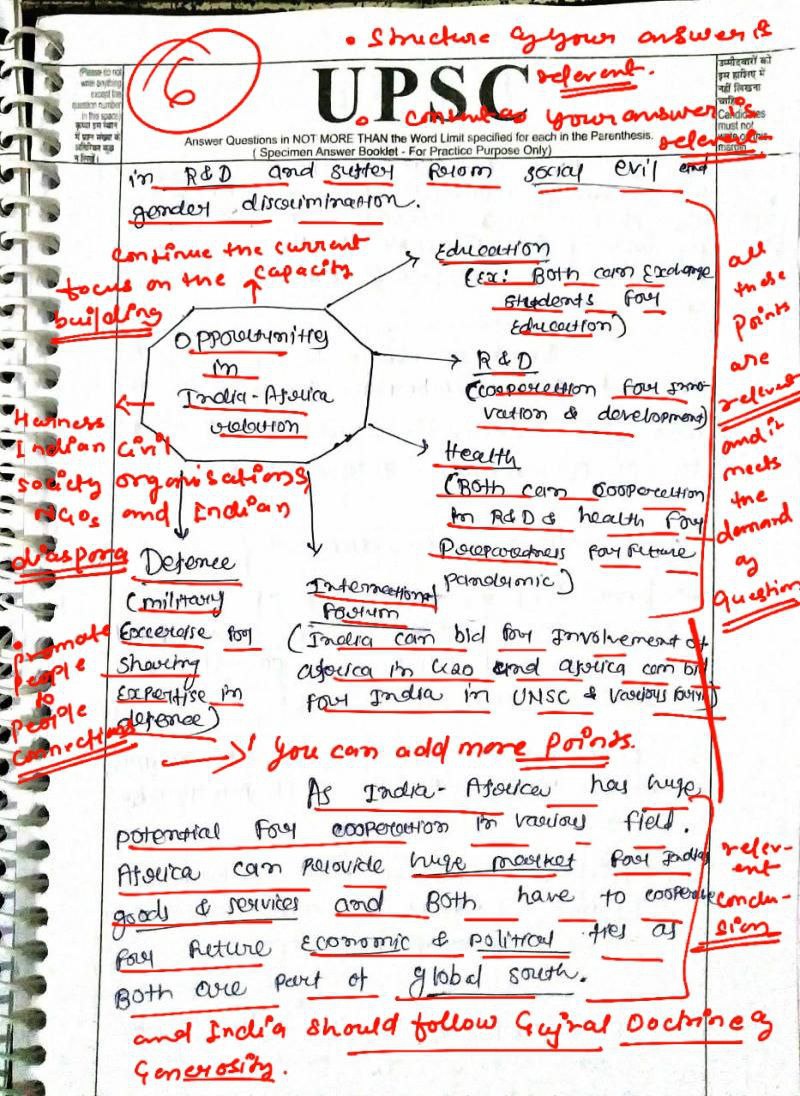 • Structure of your answer is
relevent.
6
UPSC
• content of your answer is
relevent
(Please do not
write anything
except the
question number
in this space)
उम्मीदवारों को
इस हाशिए में
नहीं लिखना
चाहिए
Candidates
must not
write on this
margin
Answer Questions in NOT MORE THAN the Word Limit specified for each in the Parenthesis.
( Specimen Answer Booklet - For Practice Purpose Only)
in R&D and suffer from social evil and
gender discrimination.
continue the current
focus on the capacity
building
Opportunities
in
India-Africa
relation
Education
(Ex: Both can Exchange
Students for
Education)
R&D
(cooperation for inno-
vation & development)
Health
(Both can cooperation
in R&D & health for
Preparedness for future
pandemic)
all
these
points
are
relevent
and it
meets
the
demand
of
question
Harness
Indian civil
society organisations,
NGOs and Indian
diaspora
Defence
(military
Excercise for
sharing
Expertise in
defence)
International
Forum
(India can bid for involvement of
africa in G20 and africa can bid
for India in UNSC & various forum)
promote
people
to
people
connections
→ you can add more points.
As India-Africa has huge
potential for cooperation in various field.
Africa can provide huge market for India
goods & services and Both have to cooperate
for future Economic & political ties as
Both are part of global south.
relev-
ent
conclu-
sion
and India should follow Gujral Doctrine of
Generosity.